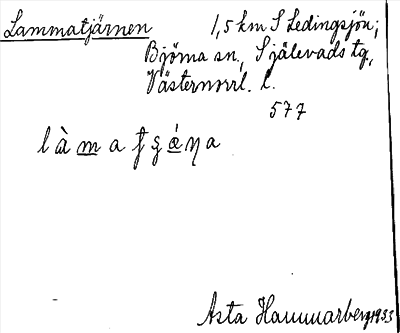 Lammatjärnen 1,5 km S Ledingsjön;
Björna sn, Själevads tg,
Västernorrl. l.
577
Asta Hammarberg 1933